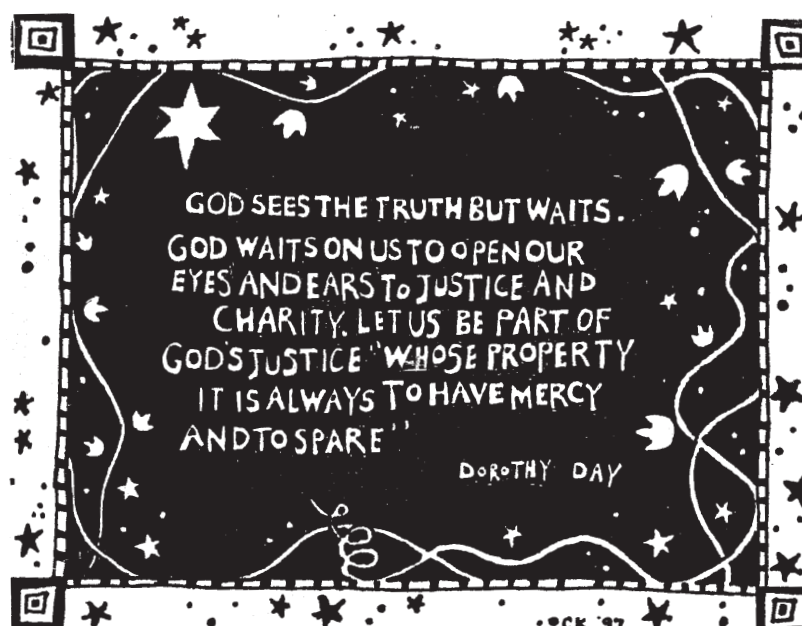 GOD SEES THE TRUTH BUT WAITS.
GOD WAITS ON US TO OPEN OUR
EYES AND EARS TO JUSTICE AND
CHARITY. LET US BE PART OF
GOD'S JUSTICE "WHOSE PROPERTY
IT IS ALWAYS TO HAVE MERCY
AND TO SPARE"
DOROTHY DAY
'97